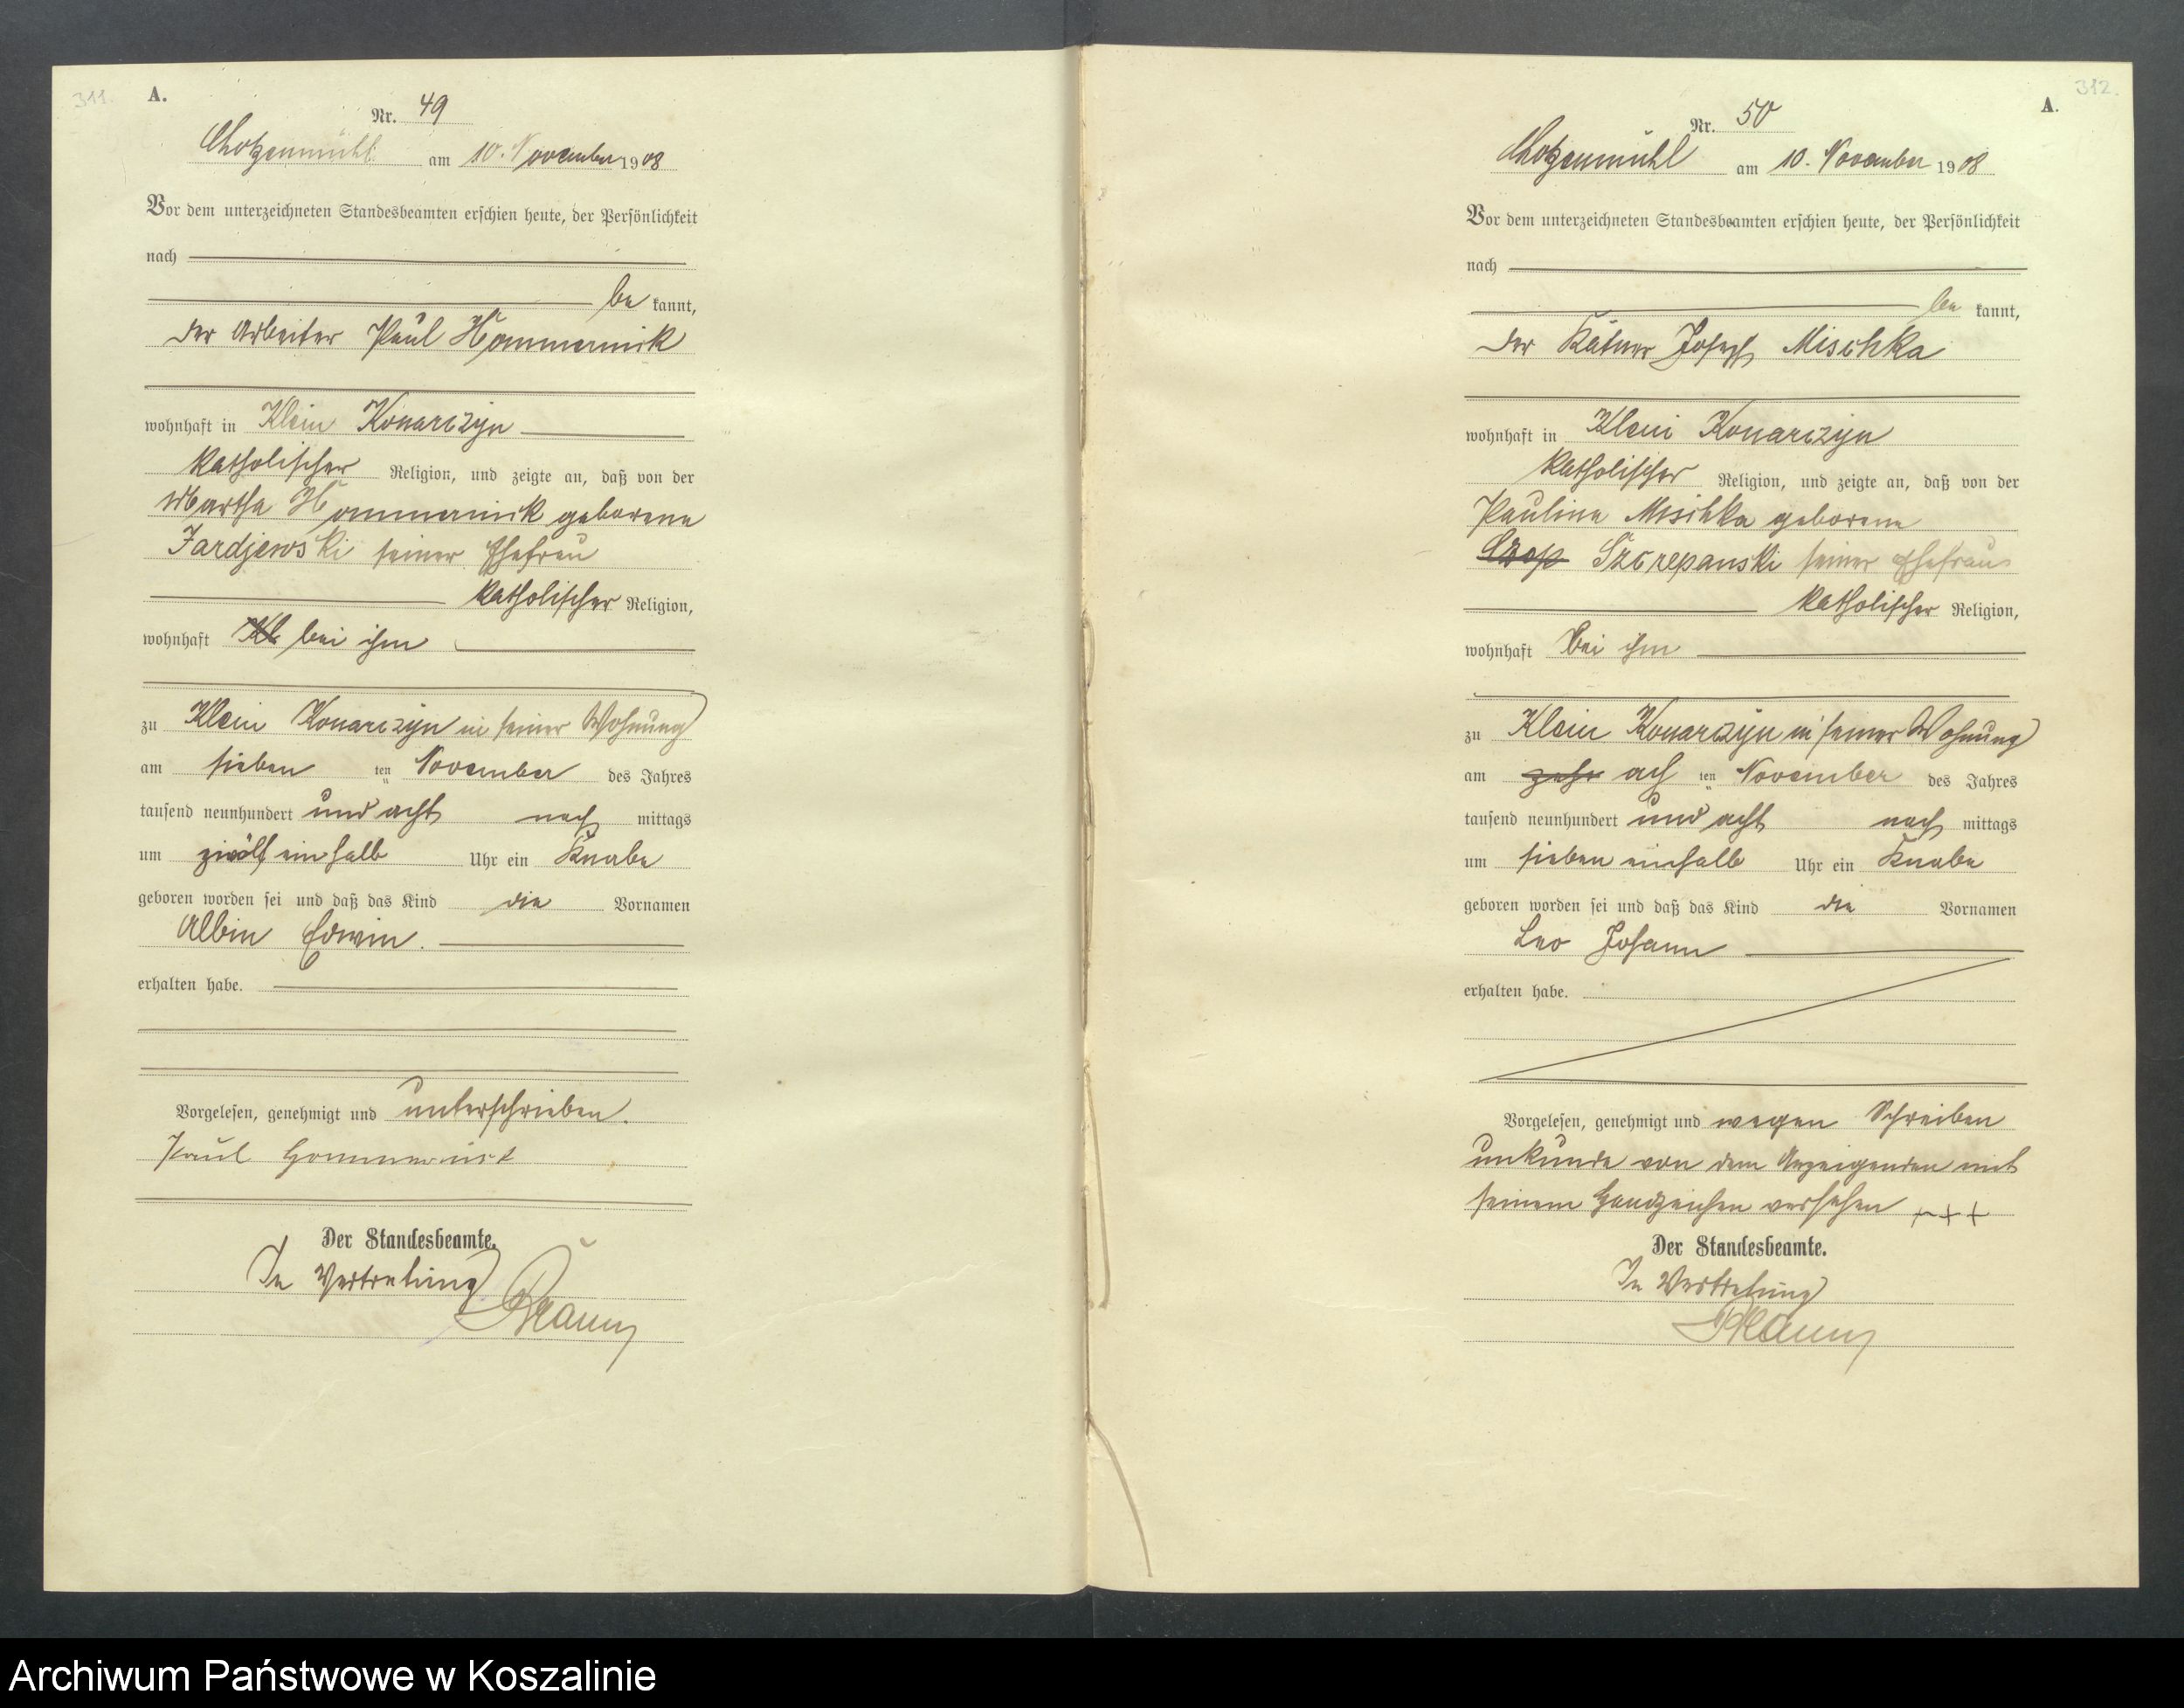 311.
A.
Nr. 49
Chotzenmühl am 10. November 1908
Vor dem unterzeichneten Standesbeamten erschien heute, der Persönlichkeit
nach
be kannt,
der Arbeiter Paul Hammermik
wohnhaft in Klein Konarczyn
katholischer Religion, und zeigte an, daß von der
Martha Hammermik geborene
Jardjewski seiner Ehefrau
katholischer Religion,
wohnhaft Kl bei ihm
zu Klein Konarczyn in seiner Wohnung
am sieben ten November des Jahres
tausend neunhundert und acht nach mittags
um zwölf einhalb Uhr ein Knabe
geboren worden sei und daß das Kind die Vornamen
Albin Edwin.
erhalten habe.
Vorgelesen, genehmigt und unterschrieben.
Paul
Der Standesbeamte.
In Vertretung
312.
A.
Nr. 50
Chotzenmühl am 10. November 1908
Vor dem unterzeichneten Standesbeamten erschien heute, der Persönlichkeit
nach
be kannt,
der Kätner Joseph Mischka
wohnhaft in Klein Konarczyn
katholischer Religion, und zeigte an, daß von der
Pauline Mischka geborene
Szczepanski seiner Ehefrau
katholischer Religion,
wohnhaft bei ihm
zu Klein Konarczyn in seiner Wohnung
am zehn ach ten November des Jahres
tausend neunhundert und acht nach mittags
um sieben einhalb Uhr ein Knabe
geboren worden sei und daß das Kind die Vornamen
Leo Johann
erhalten habe.
Vorgelesen, genehmigt und wegen Schreiben
unkunde von dem Anzeigenden mit
seinem Handzeichen versehen +++
Der Standesbeamte.
In Vertretung
Archiwum Państwowe w Koszalinie